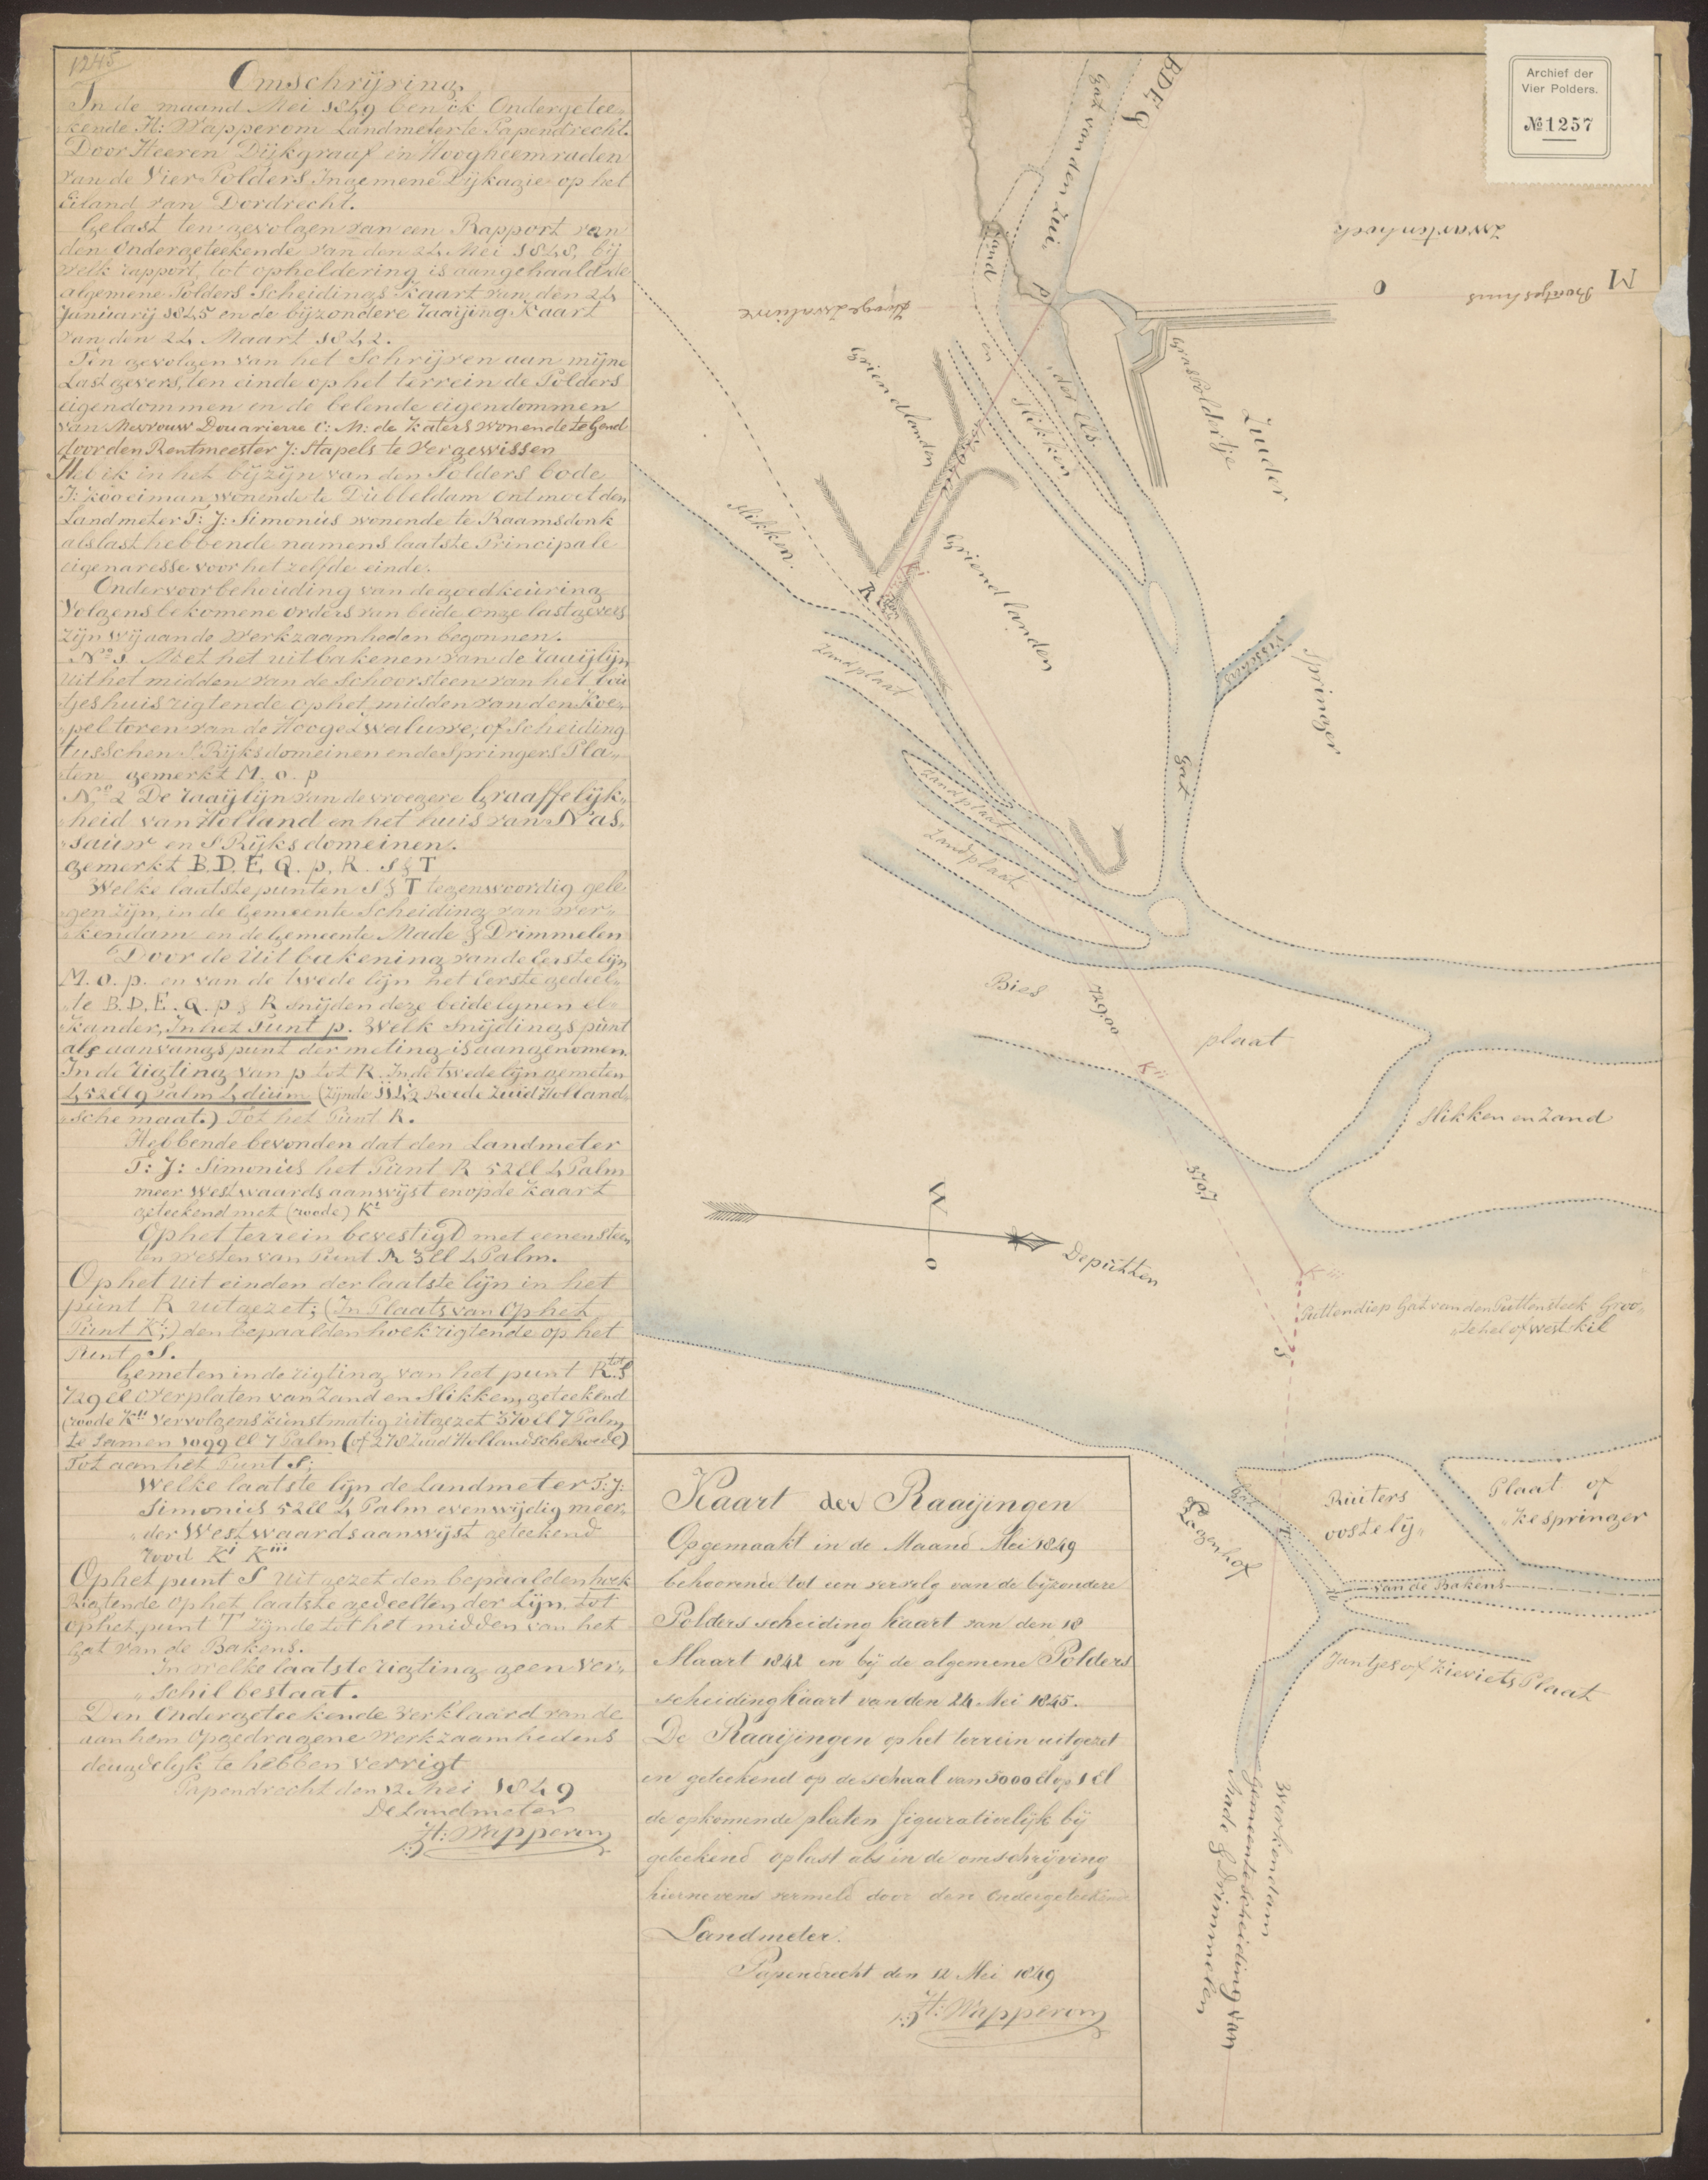 1245
Omschrijving
In de maand Mei 1849 ben ik Ondergetee„
„kende H: Wapperom Landmeter te Papendrecht.
Door Heeren Dijkgraaf en Hoogheemraden
van de Vier Polders Ingemene Dijkagie op het
Eiland van Dordrecht.
Gelast ten gevolgen van een Rapport van
den Ondergeteekende van den 24 Mei 1848, bij
welk rapport, tot opheldering is aangehaald de
algemene Polders Scheidings Kaart van den 24
Januarij 1845 en de bijzondere raaijing Kaart
van den 24 Maart 1842.
Ten gevolgen van het Schrijven aan mijne
Lastgevers, ten einde op het terrein de Polders
eigendommen en de belende eigendommen
van Mevrouw Douariere C: M: de Katers wonende te Gend
door den Rentmeester J: Stapels te Vergewissen
Heb ik in het bijzijn van den Polders bode
J: Kooeiman wonende te Dubbeldam ontmoet den
Landmeter T: J: Simonius wonende te Raamsdonk
als last hebbende namens laatste Principale
eigenaresse voor het zelfde einde.
Onder voorbehouding van de goedkeuring
Volgens bekomene orders van beide onze lastgevers
zijn wij aan de werkzaamheden begonnen.
No 1 Met het uitbakenen van de raaijlijn
uit het midden van de Schoorsteen van het
„tjeshuis rigtende op het midden van den Koe„
„pel toren van de Hooge Zwaluwe, of Scheiding
tusschen S'Rijks domeinen en de Springers Pla„
„ten gemerkt M. o. p
No 2 De raaijlijn van de vroegere Graaffelijk„
„heid van Holland en het huis van Nas„
„sauw en S'Rijks domeinen.
gemerkt B. D. E. Q. p. R. S & T
Welke laatste punten S & T tegenwoordig gele
„gen zijn, in de Gemeente Scheiding van Wer„
„kendam en de Gemeente Made & Drimmelen
Door de Uitbakening van de Eerste lijn
M. o. p. en van de twede lijn het Eerste gedeel„
„te B. D. E. Q. p & R snijden deze beide lijnen el„
kander, In het Punt p. Welk snijdings punt
als aanvangs punt der meting is aangenomen.
In de rigting van p tot R. In de twede lijn gemeten
452 El 9 Palm 4 duim (zijnde Roede Zuid Holland„
„sche maat.) Tot het Punt R.
Hebbende bevonden dat den Landmeter
T: J: Simonius het Punt R 52 El 4 Palm
meer Westwaards aanwijst en op de Kaart
geteekend met (roode) Ki
Op het terrein bevestigd met eenen Steen
ten westen van Punt R 3 El 4 Palm.
Op het uit einden der laatste lijn in het
punt R uitgezet; (In Plaats van Op het
Punt Ki;) den bepaalden hoek rigtende op het
Punt S.
Gemeten in de rigting van het punt R tot S
729 El over platen van Zand en Slikken, geteekend
(roode Kii Vervolgens Kunstmatig uitgezet 370 El 7 Palm
te Samen 1099 El 7 Palm (of 278 Zuid Hollandsche Roede)
Tot aan het Punt S;
Welke laatste lijn de Landmeter T: J:
Simonius 52 El 4 Palm evenwijdig meer„
„der Westwaards aanwijst geteekend
rood Ki Kiii
Op het punt S Uitgezet den bepaalden hoek
Rigtende op het laatste gedeelten der Lijn. tot
op het punt T zijnde tot het midden van het
Gat van de Bakens.
In welke laatste rigting geen Ver„
„schil bestaat.
Den Ondergeteekende Verklaard van de
aan hem Opgedragene Werkzaamhedens
deugdelijk te hebben Verrigt
Papendrecht den 12 Mei 1849
De Landmeter
H: Wapperom
Kaart der Raaijingen
Opgemaakt in de Maand Mei 1849
behoorende tot een vervolg van de bijzondere
Polders scheiding kaart van den 18
Maart 1842 en bij de algemene Polders
scheiding kaart van den 24 Mei 1845.
De Raaijingen op het terrein uitgezet
en geteekend op de schaal van 5000 El op 1 El
de opkomende platen figurativelijk bij
geteekend op last als in de omschrijving
hiernevens vermeld door den Ondergeteekende
Landmeter.
Papendrecht den 12 Mei 1849
H: Wapperom
Archief der
Vier Polders.
No 1257
BDEQ
Gat van den Zui„
„der Els.
Zwartenhoek
M
huis
o
Hooge Zwaluwe
Zand
en
Slikken
p
Grasboldertje
Zuider
Springer
Griendlanden
Slikken.
Griend landen
R
Ki
Zandplaat
Zandplaat
Zandplaat
Visschers
Gat
Bies
plaat
729,00
Kii
Slikken en Zand
370,7
W
O
De putten
Kiii
Puttendiep Gat van den Puttensteek Groo„
„te hel of west kil
S
Lagenhof
Gat
T
Ruiters
oostelij„
Plaat of
„ke springer
van de Bakens
Jantjes of Kieviets Plaat
Werkendam
Gemeente scheiding van
Made & Drimmelen